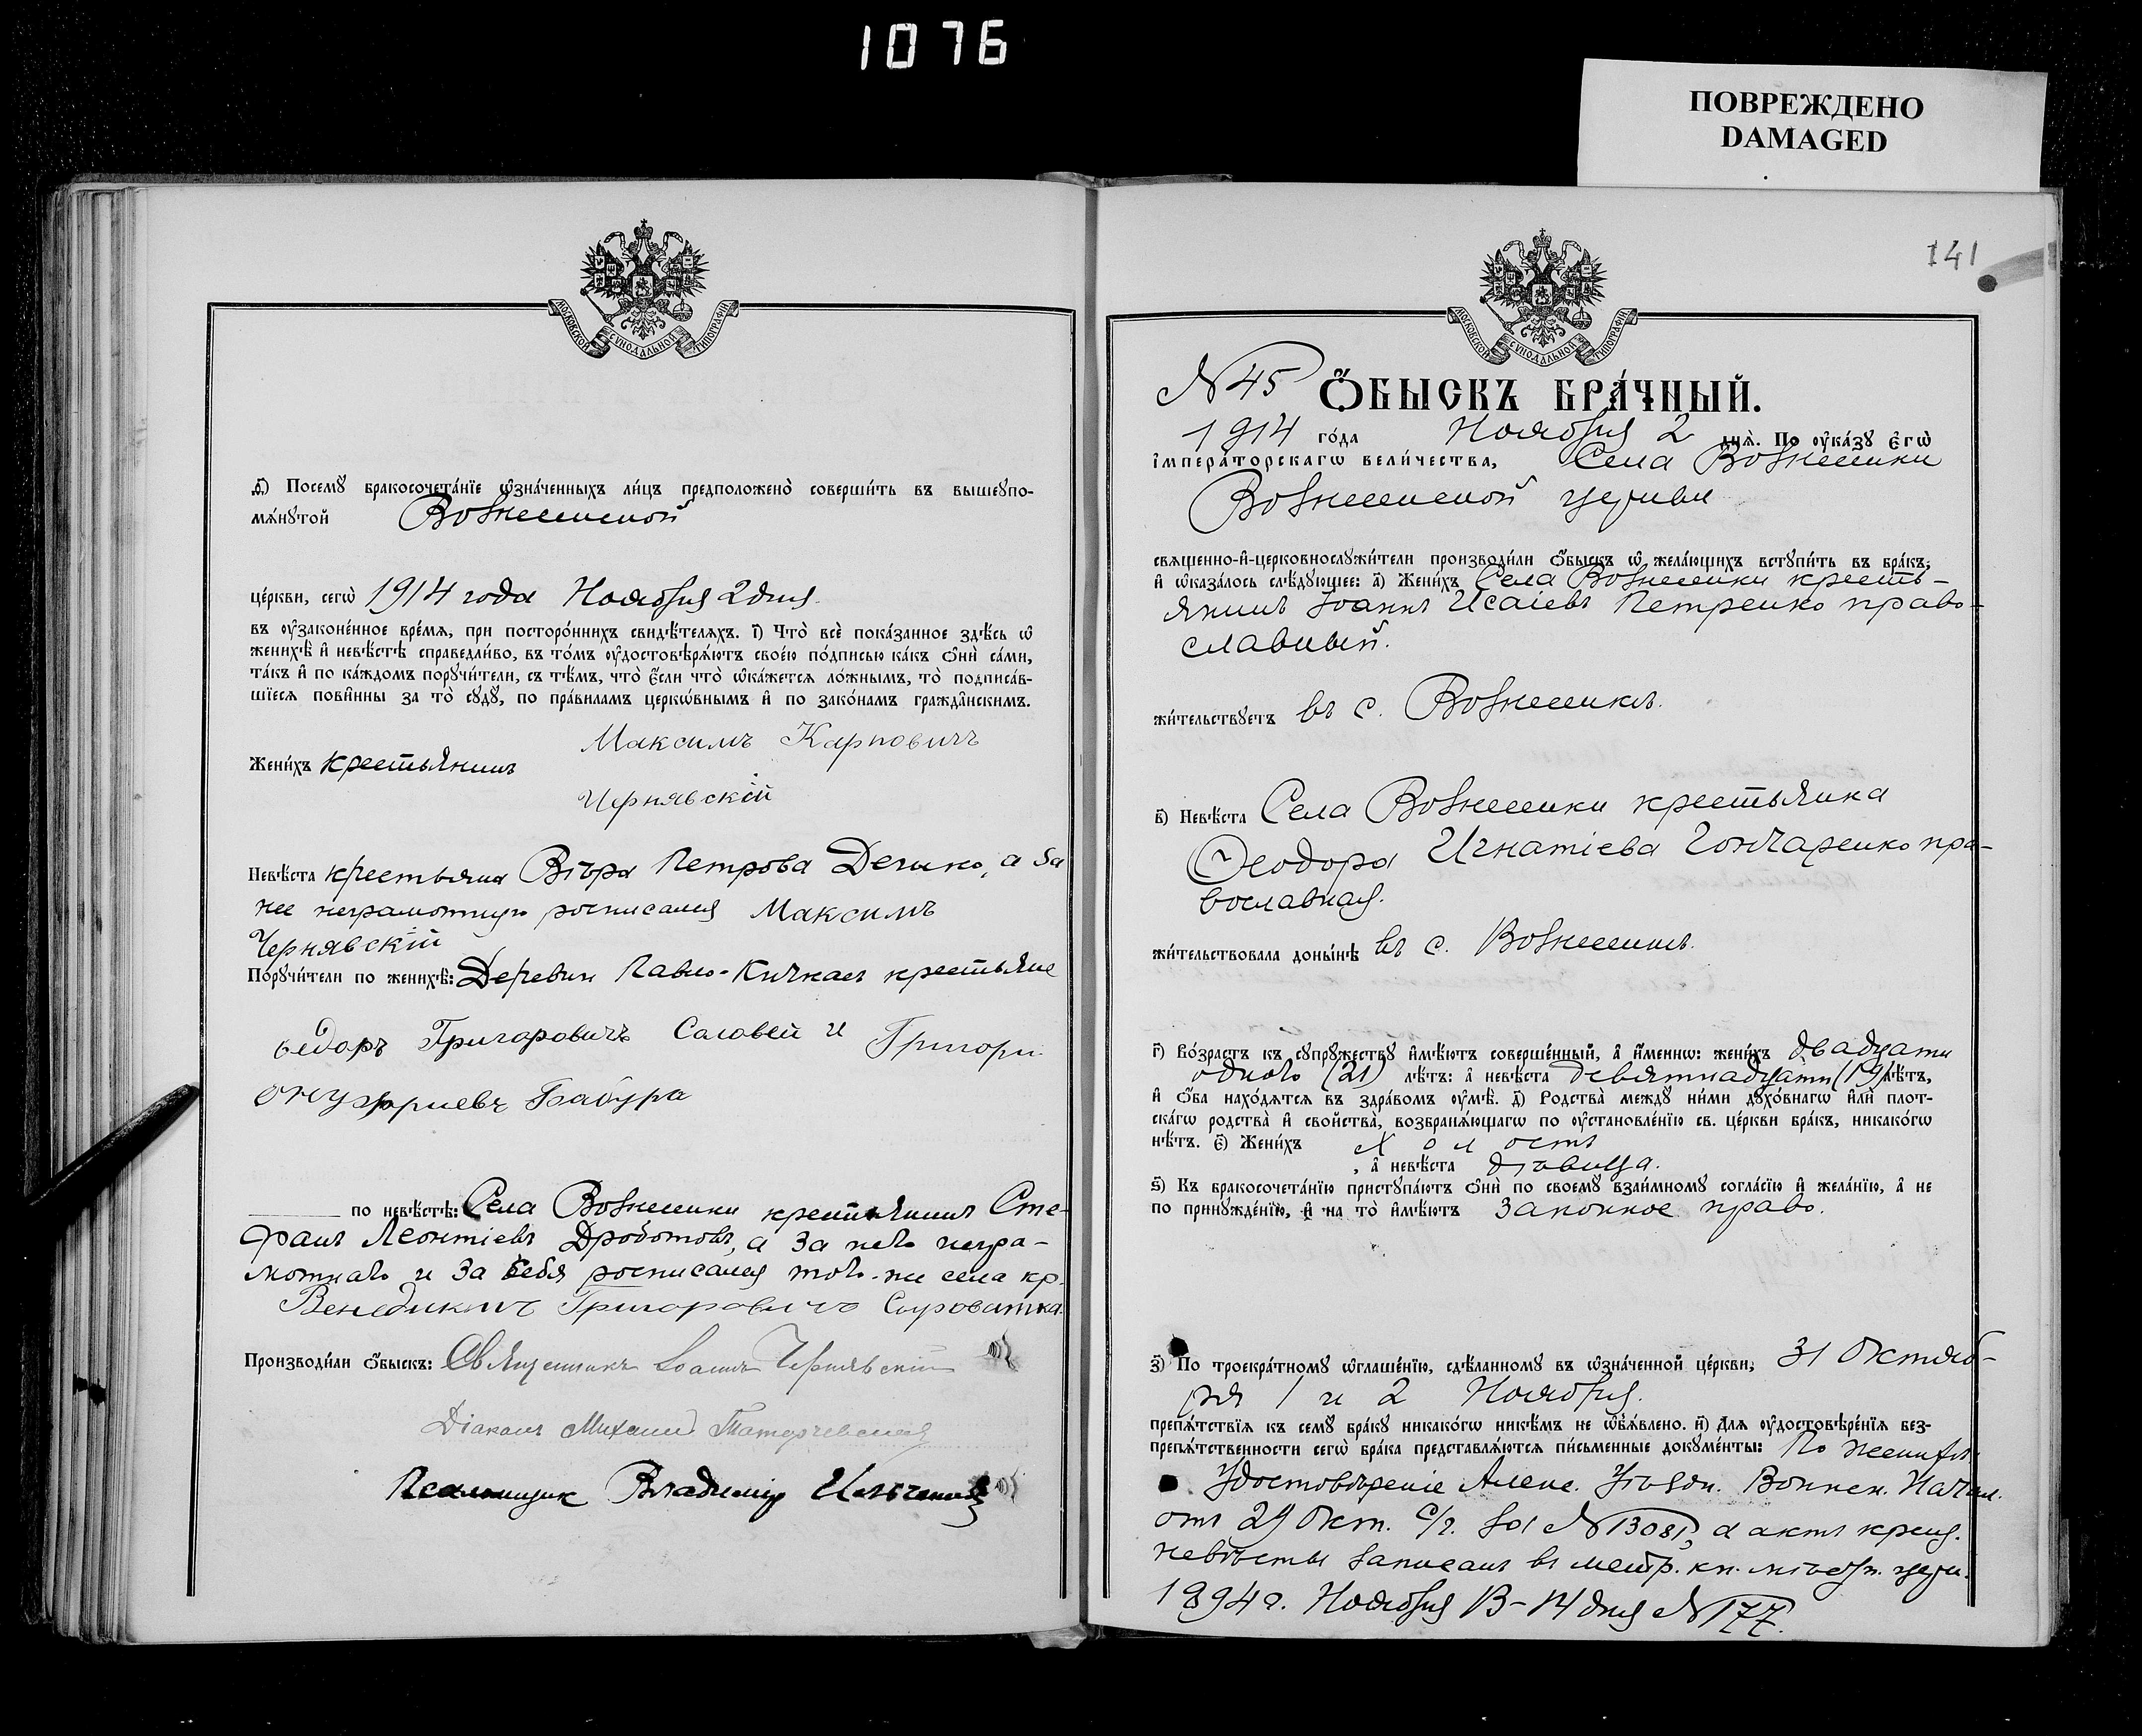 1076
ПОВРЕЖДЕНО
DAMAGED
МОСКОВСКОЙ СѴНОДАЛЬНОЙ ТИПОГРАФІИ
ѳ҃) Посемꙋ бракосочета́нїе ѡ҆зна́ченныхъ ли́цъ предположено̀ соверши́ть въ вышеꙋпо-
мѧ́нꙋтой Вознесенской
це́ркви, сегѡ̀ 1914 года Ноября 2 дня
въ ᲂу҆законе́нное вре́мѧ, при посторо́ннихъ свидѣ́телѧхъ. і҃) Что̀ всѐ пока́занное здѣ́сь ѡ҆
женихѣ̀ и҆ невѣ́стѣ справедли́во, въ то́мъ ᲂу҆достовѣрѧ́ютъ свое́ю по́дписью ка́къ ѻ҆нѝ са́ми,
та́къ и҆ по ка́ждомъ порꙋчи́тели, съ тѣ́мъ, что̀ є҆́сли что̀ ѡ҆ка́жетсѧ ло́жнымъ, то̀ подписа́в-
шїесѧ пови́нны за то̀ сꙋдꙋ̀, по пра́виламъ церкѡ́внымъ и҆ по зако́намъ гражда́нскимъ.
Максимъ Карповичъ
Жени́хъ крестьянинъ
Чернявскій
Невѣ́ста крестьянка Вѣра Петрова Дечико, а за
нее неграмотную росписался Максимъ
Чернявскій
Порꙋчи́тели по женихѣ̀: Деревни Павло-Кичкасъ крестьяне
Ѳедоръ Григоровичъ Саловей и Григори
Онуфриевъ Бабура
по невѣ́стѣ: Села Вознесенки крестьянинъ Сте-
фанъ Леонтіевъ Дроботовъ, а за него негра-
мотнаго и за себя росписался того-же села кр.
Венедиктъ Григоровичъ Сыроватка
Производи́ли ѻ҆́быскъ: Священникъ Іоаннъ Чернявскій
Діаконъ Михаилъ
Псаломщик Владимір
141
МОСКОВСКОЙ СѴНОДАЛЬНОЙ ТИПОГРАФІИ
N 45 Ѻ҆́БЫСКЪ БРА́ЧНЫЙ.
1914 го́да Ноября 2 днѧ̀. По ᲂу҆ка́зꙋ є҆гѡ̀
і҆мпера́торскагѡ вели́чества, Села Вознесенки
Вознесенской церкви
свѧщенно-и҆-церковнослꙋжи́тели производи́ли ѻ҆́быскъ ѡ҆ жела́ющихъ встꙋпи́ть въ бра́къ,
и҆ ѡ҆каза́лось слѣ́дꙋющее: а҃) Жени́хъ Села Вознесенки кресть-
янинъ Іоаннъ Исаіевъ Петренко право-
славный.
жи́тельствꙋетъ въ с. Вознесенкѣ.
в҃) Невѣ́ста Села Вознесенки крестьянка
Ѳеодора Игнатіева Гончаренко пра-
вославная.
жи́тельствовала доны́нѣ въ с. Вознесенкѣ.
г҃) Во́зрастъ къ сꙋпрꙋ́жествꙋ и҆мѣ́ютъ соверше́нный, а҆ и҆́меннѡ: жени́хъ двадцати
одного (21) лѣ́тъ: а҆ невѣ́ста девятнадцати (19) лѣ́тъ,
и҆ ѻ҆́ба нахо́дѧтсѧ въ здра́вомъ ᲂу҆мѣ̀. д҃) Родства̀ междꙋ̀ ни́ми дꙋхо́внагѡ и҆лѝ плот-
ска́гѡ родства̀ и҆ сво́йства̀, возбранѧ́ющагѡ по ᲂу҆становле́нїю св. це́ркви бра́къ, никако́гѡ
нѣ́тъ. є҃) Жени́хъ холостъ
, а҆ невѣ́ста дѣвица.
ѕ҃) Къ бракосочета́нїю пристꙋпа́ютъ ѻ҆нѝ по своемꙋ̀ взаи́мномꙋ согла́сїю и҆ жела́нїю, а҆ не
по принꙋжде́нїю, и҆ на то̀ и҆мѣ́ютъ законное право.
з҃) По троекра́тномꙋ ѡ҆глаше́нїю, сдѣ́ланномꙋ въ ѡ҆зна́ченной це́ркви, 31 Октяб-
ря 1 и 2 Ноября.
препѧ́тствїѧ къ семꙋ̀ бра́кꙋ никако́гѡ никѣ́мъ не ѡ҆б̾ѧ́влено. и҃) Длѧ ᲂу҆достовѣре́нїѧ без-
препѧ́тственности сегѡ̀ бра́ка представлѧ́ютсѧ пи́сьменные докꙋме́нты: По женихѣ
Удостовѣреніе Алекс. Уѣздн. Воинск. Начал.
отъ 29 Окт. с/г. за N 13081, а актъ крещ.
невѣсты записанъ въ метр. кн. мѣстн. церк.
1894 г. Ноября 13-14 дня N 177.